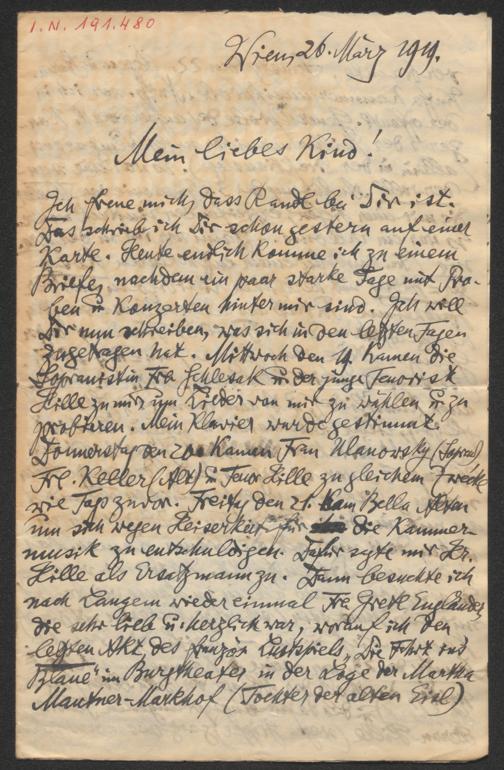 I.N. 191.480
Wien, 26. März 1919.
Mein liebes Kind!
Ich freue mich, dass Randl bei Dir ist.
Das schrieb ich Dir schon gestern auf einer
Karte. Heute endlich komme ich zu einem
Briefe, nachdem ein paar starke Tage mit Pro-
ben u Konzerten hinter mir sind. Ich will
Dir nun schreiben, was sich in den letzten Tagen
zugetragen hat. Mittwoch den 19. kamen die
Sopranistin Frl. Schlesak u der junge Tenorist
Hille zu mir um Lieder von mir zu wählen u zu
probieren. Mein Klavier wurde gestimmt.
Donnerstag den 20. kamen Frau Ulanowsky (Sopran)
Frl. Keller (Alt) u Tenor Hille zu gleichem Zwecke
wie Tags zuvor. Freitg den 21. kam Bella
um sich wegen Heiserkeit für die Kammer-
musik zu entschuldigen. Dafür sagte mir Hr.
Hille als Ersatzmann zu. Dann besuchte ich
nach Langem wieder einmal Frl. Gretl Engländer
die sehr lieb u. herzlich war, worauf ich den
letzten Akt des französ Lustspiels, "Die Fahrt ins
Blaue" im Burgtheater in der Loge der Martha
Mautner-Markhof (Tochter der alten)